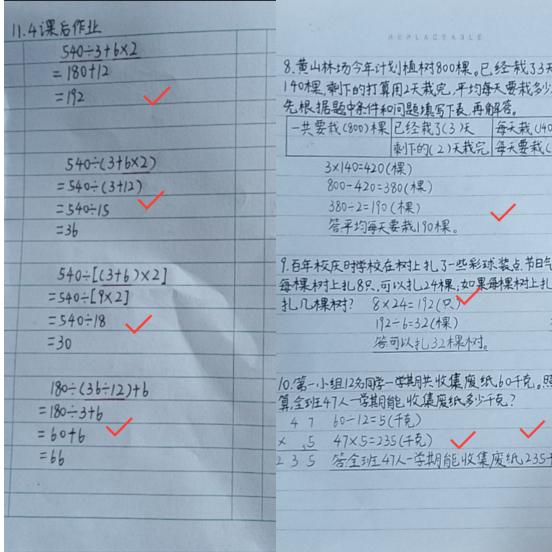 11.4课后作业
540÷3+6×2
=180+12
=192
540÷(3+6×2)
=540÷(3+12)
=540÷15
=36
540÷[(3+6)×2]
=540÷[9×2]
=540÷18
=30
180÷(36÷12)+6
=180÷3+6
=60+6
=66
REPLACEABLE
8.黄山林场今年计划植树800棵。已经栽了3天
140棵,剩下的打算用2天栽完,平均每天栽多少
先根据题中条件和问题填写下表,再解答。
一共要栽(800)棵 已经栽了(3)天 每天栽(140
剩下的(2)天栽完 每天要栽(
3×140=420(棵)
800-420=380(棵)
380÷2=190(棵)
答平均每天要栽190棵。
9.百年校庆时学校在树上扎了一些彩球装点节日气
每棵树上扎8只,可以扎24棵,如果每棵树上扎
扎几棵树? 8×24=192(只)
192÷6=32(棵)
答可以扎32棵树。
10.第一小组12名同学一学期共收集废纸60千克。照
算,全班47人一学期能收集废纸多少千克?
47 60÷12=5(千克)
× 5 47×5=235(千克)
235 答全班47人一学期能收集废纸235千